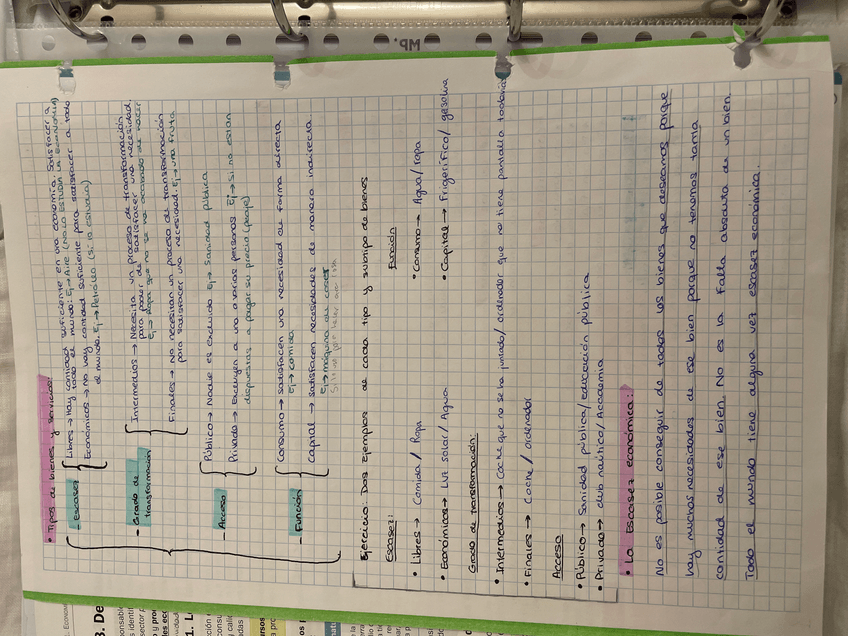 • Tipos de bienes y servicios:
- Escasez
Libres → Hay cantidad suficiente en una economía. Satisfacer a
todo el mundo. Ej → Aire (NO LO ESTUDIA LA ECONOMÍA)
Económicos → no hay cantidad suficiente para satisfacer a todo
el mundo. Ej → Petróleo (Sí lo estudia)
- Grado de
transformación
Intermedios → Necesita un proceso de transformación
para poder de satisfacer una necesidad.
Ej → Ropa que no se ha acabado de hacer
Finales → no necesitan un proceso de transformación
para satisfacer una necesidad. Ej → una fruta
- Acceso
Público → Nadie es excluido Ej → Sanidad Pública
Privado → Excluyen a una o varias personas Ej → Si no están
dispuestos a pagar su precio (peaje)
- Función
Consumo → satisfacen una necesidad de forma directa
Ej → comida
Capital → Satisfacen necesidades de manera indirecta
Ej → máquina de coser
Ejercicio: Dos ejemplos de cada tipo y subtipo de bienes
Escasez:
• Libres → Comida / Ropa
• Económicos → Luz solar / Agua
Grado de transformación:
• Intermedios → Coche que no se ha juntado / ordenador que no tiene pantalla todavía
• Finales → Coche / ordenador
Acceso
• Público → Sanidad pública / educación pública
• Privado → club naútico / Academia
Función
• Consumo → Agua / ropa
• Capital → Frigerífico / gasolina
• La Escasez económica:
No es posible conseguir de todos los bienes que deseamos porque
hay muchas necesidades de ese bien porque no tenemos tanta
cantidad de ese bien. No es la falta absoluta de un bien.
Todo el mundo tiene alguna vez escasez económica.
MP.